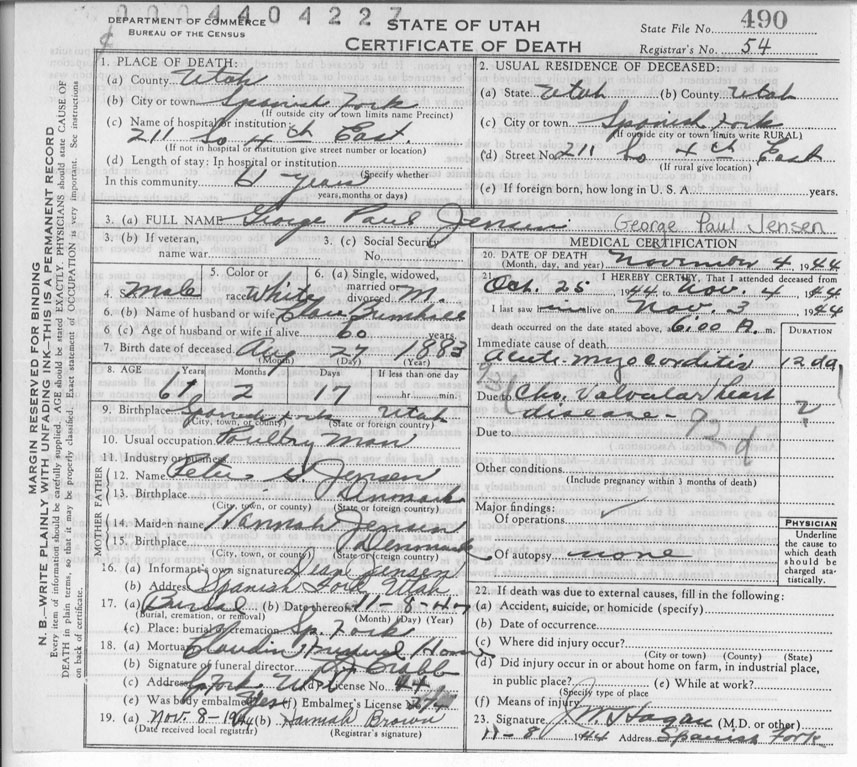 0004404227
DEPARTMENT OF COMMERCE
BUREAU OF THE CENSUS
STATE OF UTAH
CERTIFICATE OF DEATH
State File No. 490
Registrar's No. 54
MARGIN RESERVED FOR BINDING
N. B.—WRITE PLAINLY WITH UNFADING INK—THIS IS A PERMANENT RECORD
Every item of information should be carefully supplied. AGE should be stated EXACTLY. PHYSICIANS should state CAUSE OF
DEATH in plain terms, so that it may be properly classified. Exact statement of OCCUPATION is very important. See instructions
on back of certificate.
1. PLACE OF DEATH:
(a) County Utah
(b) City or town Spanish Fork
(If outside city or town limits name Precinct)
(c) Name of hospital or institution:
211 So 4th East.
(If not in hospital or institution give street number or location)
(d) Length of stay: In hospital or institution
(Specify whether
In this community 61 years
years, months or days)
2. USUAL RESIDENCE OF DECEASED:
(a) State Utah (b) County Utah
(c) City or town Spanish Fork
(If outside city or town limits write RURAL)
(d) Street No. 211 So 4th East
(If rural give location)
(e) If foreign born, how long in U. S. A. years.
3. (a) FULL NAME George Paul Jensen George Paul Jensen
3. (b) If veteran,
name war
3. (c) Social Security
No.
4. Sex Male
5. Color or
race White
6. (a) Single, widowed,
married or
divorced M.
6. (b) Name of husband or wife
6. (c) Age of husband or wife if alive 60 years.
7. Birth date of deceased Aug 27 1883
(Month) (Day) (Year)
8. AGE Years Months Days If less than one day
61 2 17 hr. min.
9. Birthplace Spanish Fork Utah
(City, town, or county) (State or foreign country)
10. Usual occupation Poultry Man
11. Industry or business
FATHER
12. Name Peter S. Jensen
13. Birthplace Denmark
(City, town, or county) (State or foreign country)
MOTHER
14. Maiden name Hannah Jensen
15. Birthplace Denmark
(City, town, or county) (State or foreign country)
16. (a) Informant's own signature Dean Jensen
(b) Address Spanish Fork Utah
17. (a) Burial (b) Date thereof 11-8-44
(Burial, cremation, or removal) (Month) (Day) (Year)
(c) Place: burial or cremation Sp. Fork
18. (a) Mortuary Claudin Funeral Home
(b) Signature of funeral director
(c) Address Sp Fork Utah (d) License No. 44
(e) Was body embalmed Yes (f) Embalmer's License
19. (a) Nov. 8-1944 (b) Hannah Brown
(Date received local registrar) (Registrar's signature)
MEDICAL CERTIFICATION
20. DATE OF DEATH
(Month, day, and year) November 4, 1944
21. I HEREBY CERTIFY, That I attended deceased from
Oct. 25 1944 to Nov. 4, 1944
I last saw him alive on Nov. 3 1944
death occurred on the date stated above, at 6:00 A. m.
DURATION
Immediate cause of death
Acute-myocarditis 12 da
Due to Chr. Valvular heart
disease - ?
92d
Due to
Other conditions
(Include pregnancy within 3 months of death)
Major findings:
Of operations
Of autopsy none
PHYSICIAN
Underline
the cause to
which death
should be
charged sta-
tistically.
22. If death was due to external causes, fill in the following:
(a) Accident, suicide, or homicide (specify)
(b) Date of occurrence
(c) Where did injury occur?
(City or town) (County) (State)
(d) Did injury occur in or about home on farm, in industrial place,
in public place? (e) While at work?
(Specify type of place
(f) Means of injury
23. Signature J. M. Hagan (M.D. or other)
11-8 1944 Address Spanish Fork